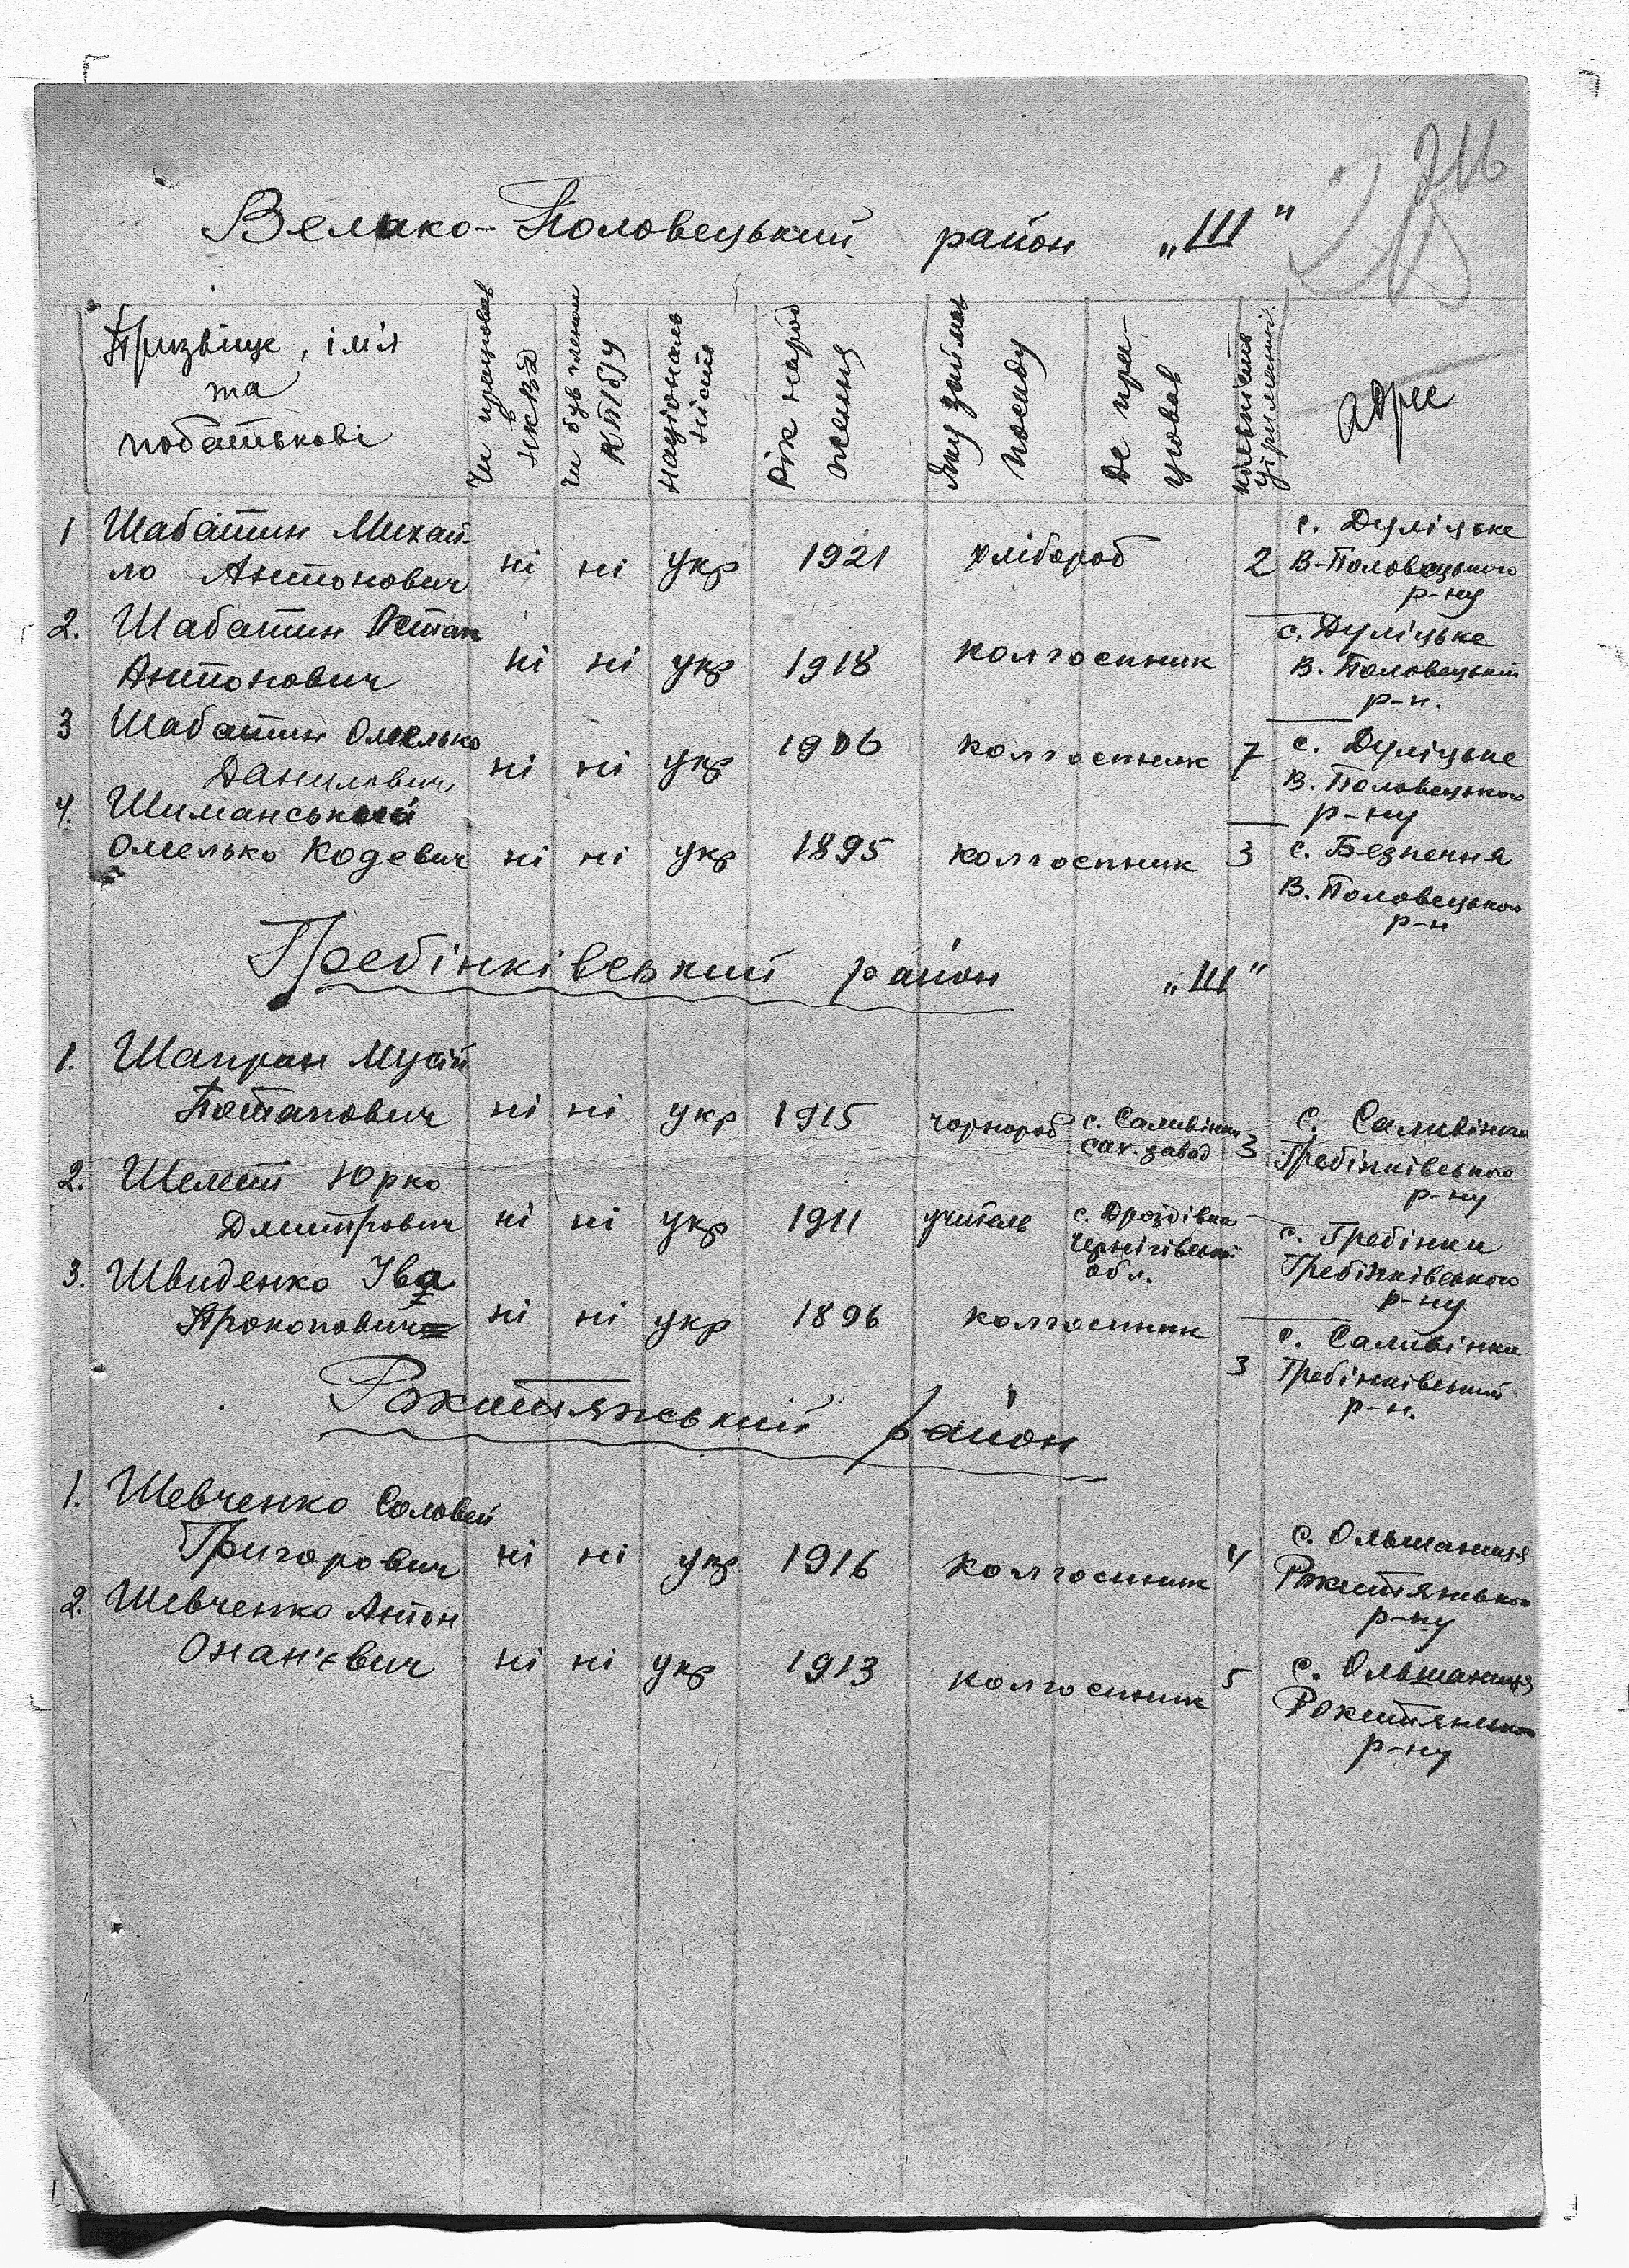 Велико-Половецький район „Ш"
Призвіще, ім'я
та
побатькові
Чи працював
НКВД
Чи був членом
КП(б)У
Національ
ність
Рік народ
ження
Яку займав
посаду
Де пра-
цював
кількість
адрес
1 Шабатин Михай-
ло Антонович ні ні укр 1921 хлібороб 2
с. Дуліцьке
В-Половецького
р-ну
2. Шабатин Остап
Антонович ні ні укр 1918 колгоспник
с. Дуліцьке
В. Половецький
р-н.
3 Шабатин Омелько
Данилович ні ні укр 1906 колгоспник 7
с. Дуліцьке
В. Половецького
р-ну
4. Шиманський
Омелько Кодевич ні ні укр 1895 колгоспник 3
с. Безпечня
В. Половецького
р-н
Гребінківський район „Ш"
1. Шапран Мусій
Потапович ні ні укр 1915 чорнороб
с. Саливінки
сах. завод
3
с. Саливінки
Гребінківського
р-ну
2. Шелест Юрко
Дмитрович ні ні укр 1911 учитель
с. Дроздівка
Чернігівської
обл.
с. Гребінки
Гребінківського
р-ну
3. Швиденко Іва
Прокопович ні ні укр 1896 колгоспник
3
с. Саливінки
Гребінківський
р-н.
Рокитянський район
1. Шевченко Соловей
Григорович ні ні укр 1916 колгоспник 4
с. Ольшаниця
Рокитянського
р-ну
2. Шевченко Антон
Онан'євич ні ні укр 1913 колгоспник 5
с. Ольшаниця
Рокитянського
р-ну